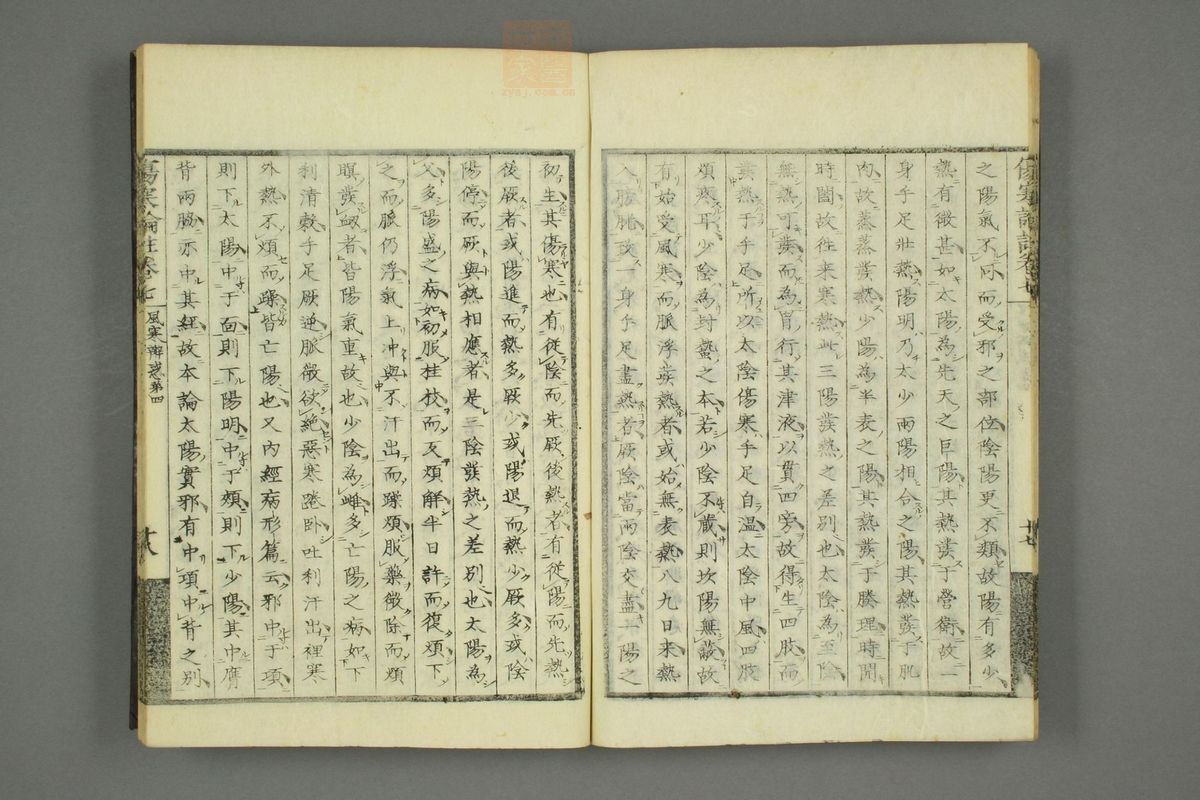 傷寒論註卷七
廿七
之陽氣不同而受邪之部位陰陽更不類故陽有多少
熱有微甚如太陽為先天之巨陽其熱發于營衛故一
身手足壯熱陽明乃太少兩陽相合之陽其熱發于肌
肉故蒸蒸發熱少陽為半表之陽其熱發于腠理時開
時闔故往來寒熱此三陽發熱之差別也太陰為至陰
無熱可發而為胃行其津液以貫四旁故得生四肢而
發熱于手足所以太陰傷寒手足自溫太陰中風四肢
煩寒耳少陰為封蟄之本若少陰不藏則坎陽無蔽故
有始受風寒而脈浮發熱者或始無表熱八九日來熱
入膀胱致一身手足盡熱者厥陰當兩陰交盡一陽之
初生其傷寒也有從陰而先厥後熱者有從陽而先熱
後厥者或陽進而熱多厥少或陽退而熱少厥多或陰
陽停而厥與熱相應者是三陰發熱之差別也太陽為
父多陽盛之病如初服桂枝而反煩解半日許而復煩下
之而脈仍浮氣上冲與不汗出而躁煩服藥微除而煩
瞑發衂者皆陽氣重故也少陰為雌多亡陽之病如下
利清穀手足厥逆脈微欲絕惡寒踡臥吐利汗出裡寒
外熱不煩而躁皆亡陽也又內經病形篇云邪中于項
則下太陽中于面則下陽明中于頰則下少陽其中膺
背兩脇亦中其經故本論太陽實邪有中項中背之別
傷寒論註卷七
風寒辨惑第四
廿八
zysj.com.cn